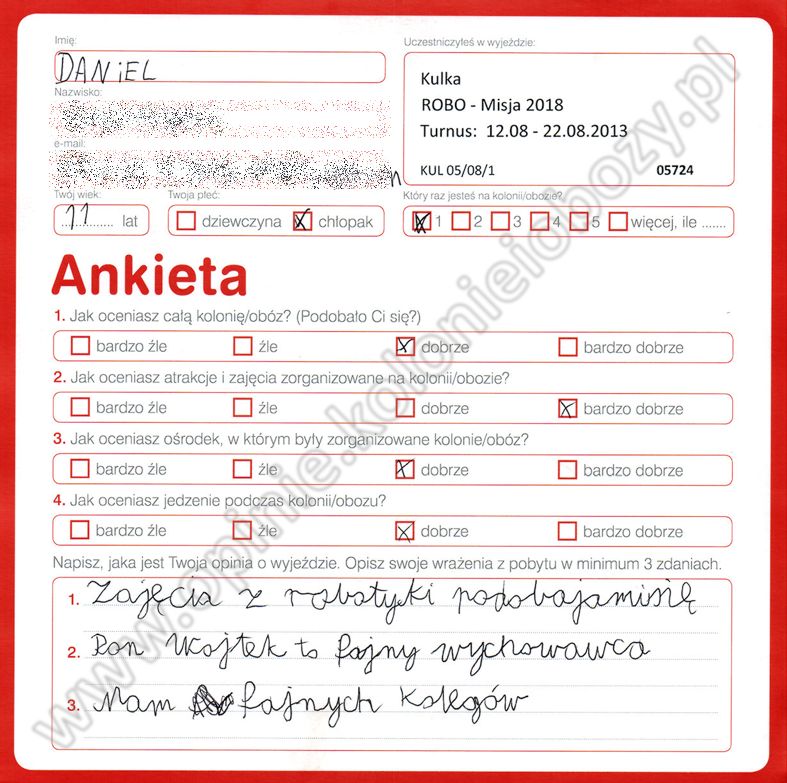 Imię:
Uczestniczyłeś w wyjeździe:
DANiEL
Kulka
ROBO - Misja 2018
Turnus: 12.08 - 22.08.2013
KUL 05/08/1 05724
Nazwisko:
e-mail:
Twój wiek:
Twoja płeć:
Który raz jesteś na kolonii/obozie?
11 lat
dziewczyna chłopak
1 2 3 4 5 więcej, ile .......
Ankieta
1. Jak oceniasz całą kolonię/obóz? (Podobało Ci się?)
bardzo źle źle dobrze bardzo dobrze
2. Jak oceniasz atrakcje i zajęcia zorganizowane na kolonii/obozie?
bardzo źle źle dobrze bardzo dobrze
3. Jak oceniasz ośrodek, w którym były zorganizowane kolonie/obóz?
bardzo źle źle dobrze bardzo dobrze
4. Jak oceniasz jedzenie podczas kolonii/obozu?
bardzo źle źle dobrze bardzo dobrze
Napisz, jaka jest Twoja opinia o wyjeździe. Opisz swoje wrażenia z pobytu w minimum 3 zdaniach.
1. Zajęcia z robotyki podobajamisię
2. Pan Wojtek to fajny wychowawca
3. Mam fajnych kolegów
www.opinie.kolonieiobozy.pl